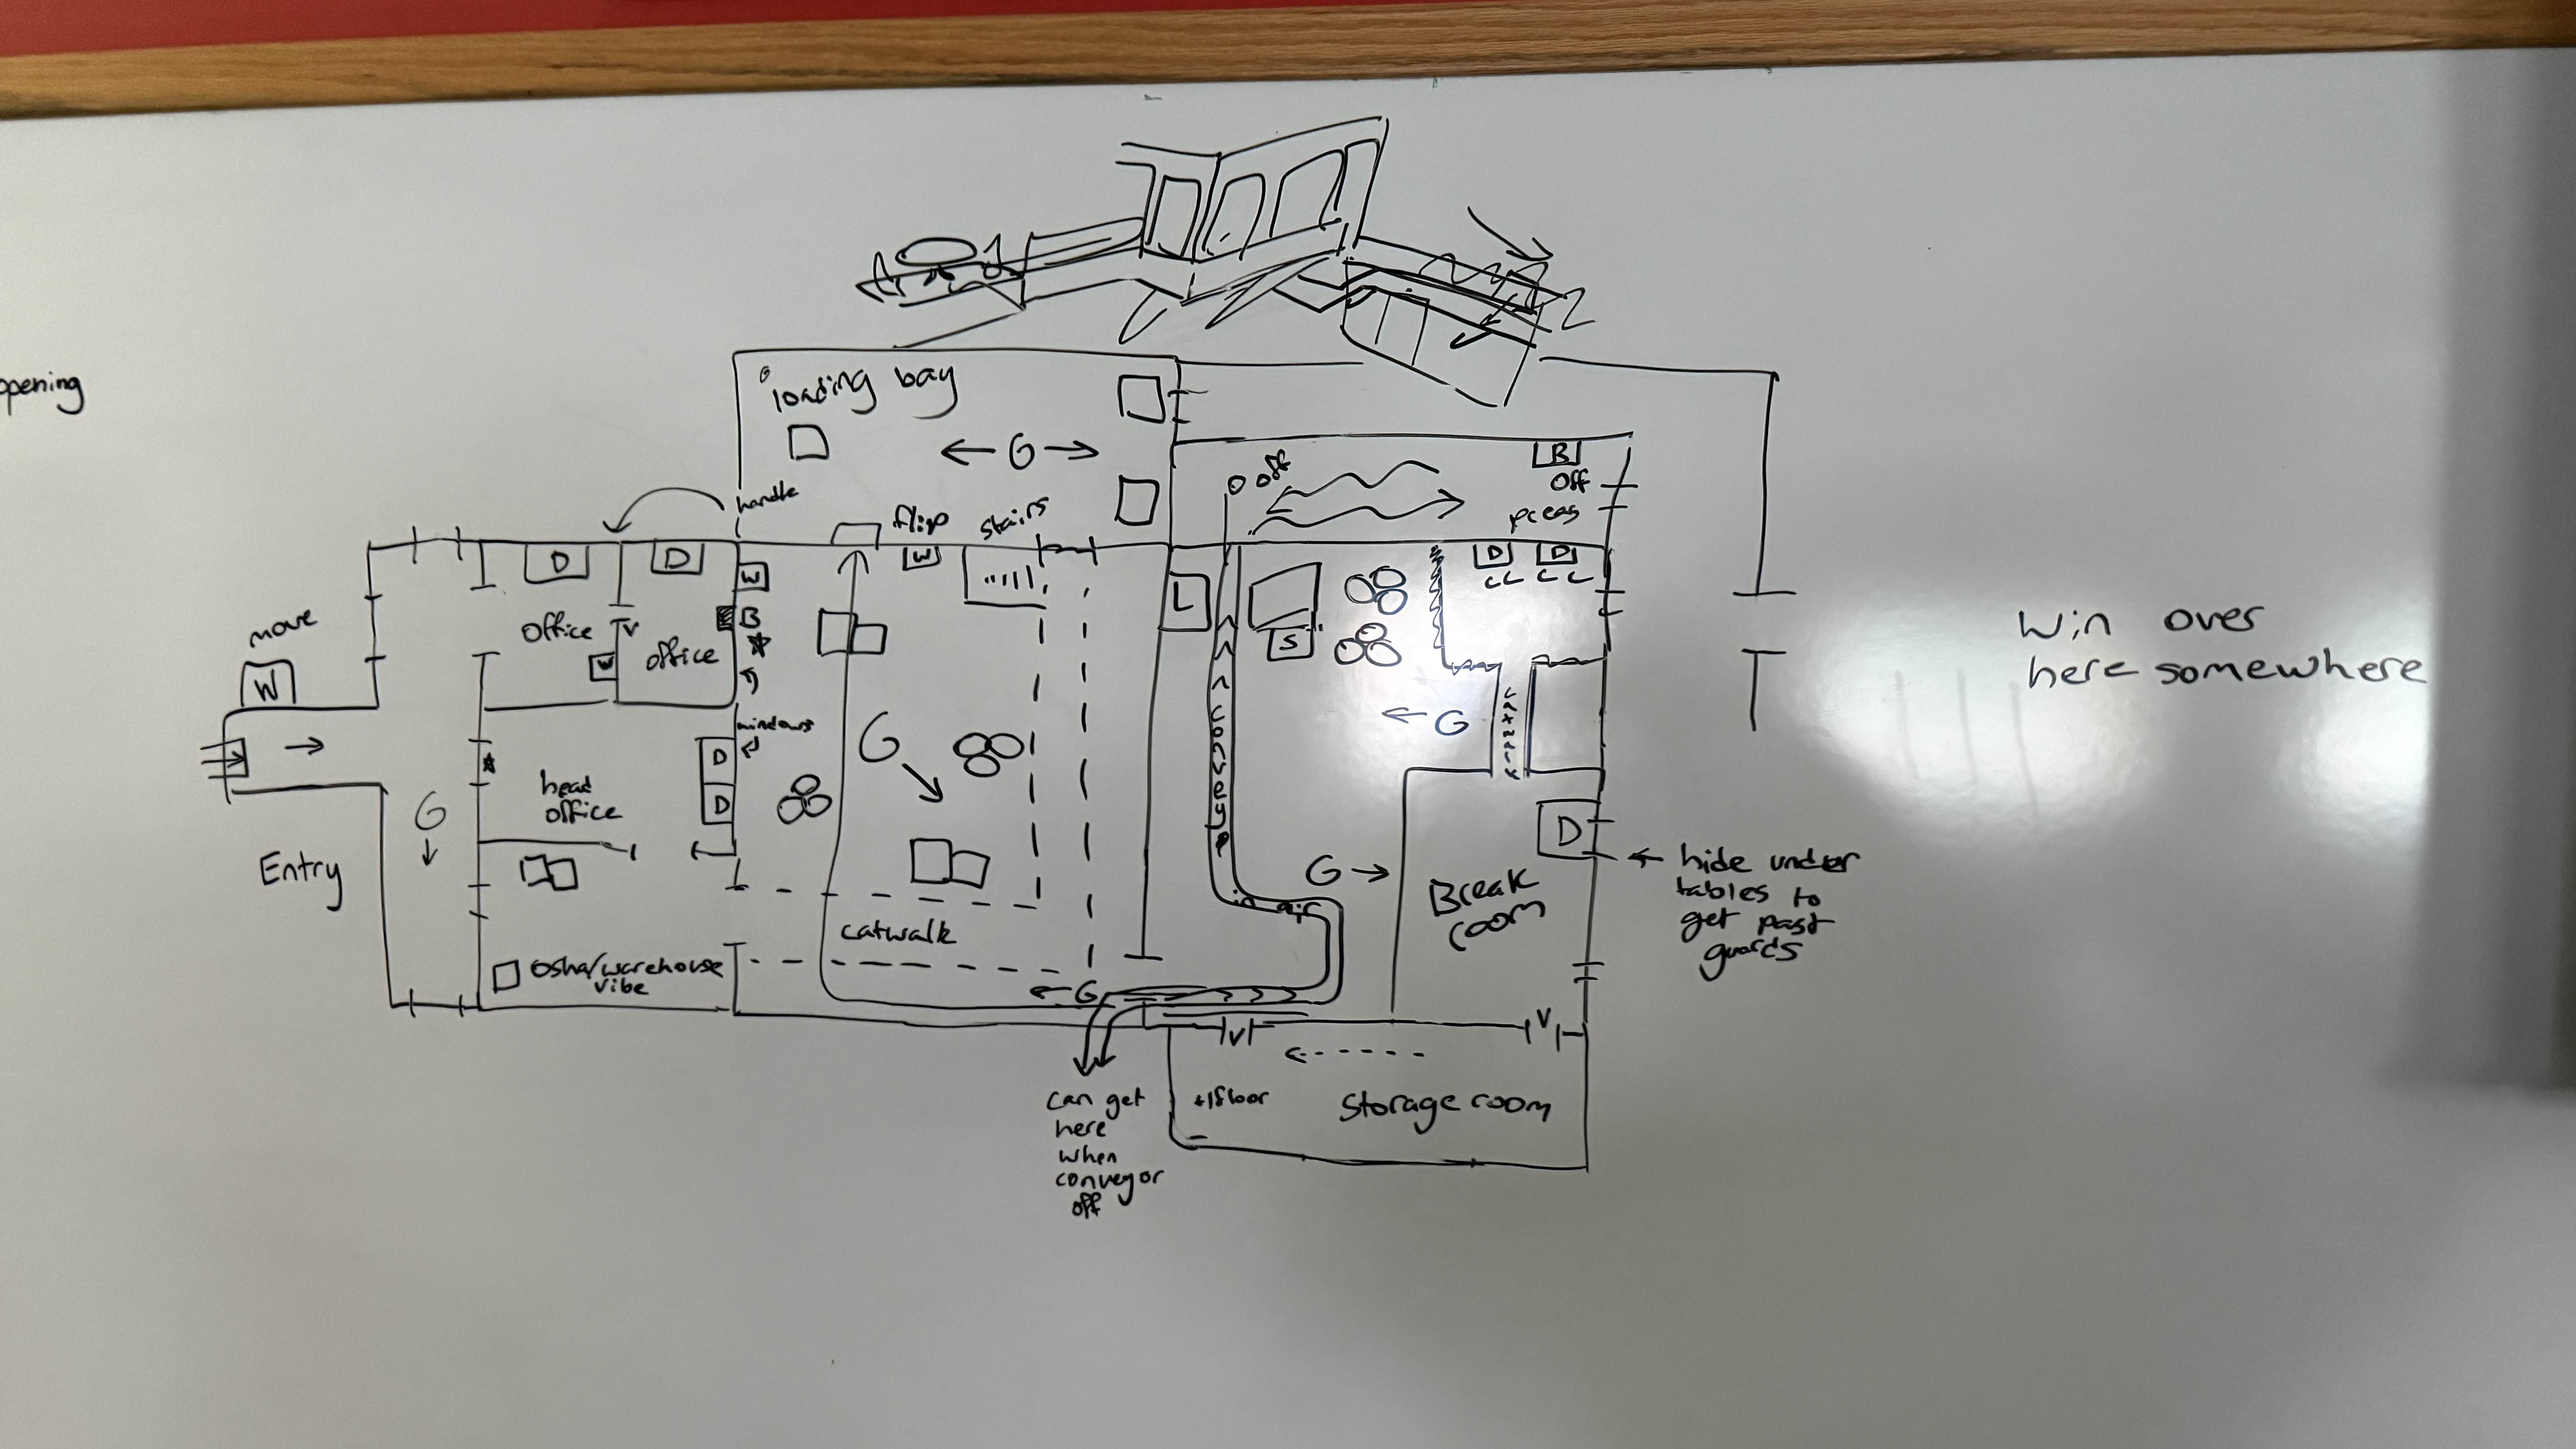 opening
loading bay
G
handle
flip
stairs
W
off
B
off
D
D
W
D
D
L
move
W
office
V
office
W
B
S
windows
G
G
conveyor
D
D
head
office
G
Entry
D
G
Break
room
hide under
tables to
get past
guards
catwalk
in air
osha/warehouse
vibe
G
V
V
can get
here
when
conveyor
off
+1 floor
storage room
win over
here somewhere